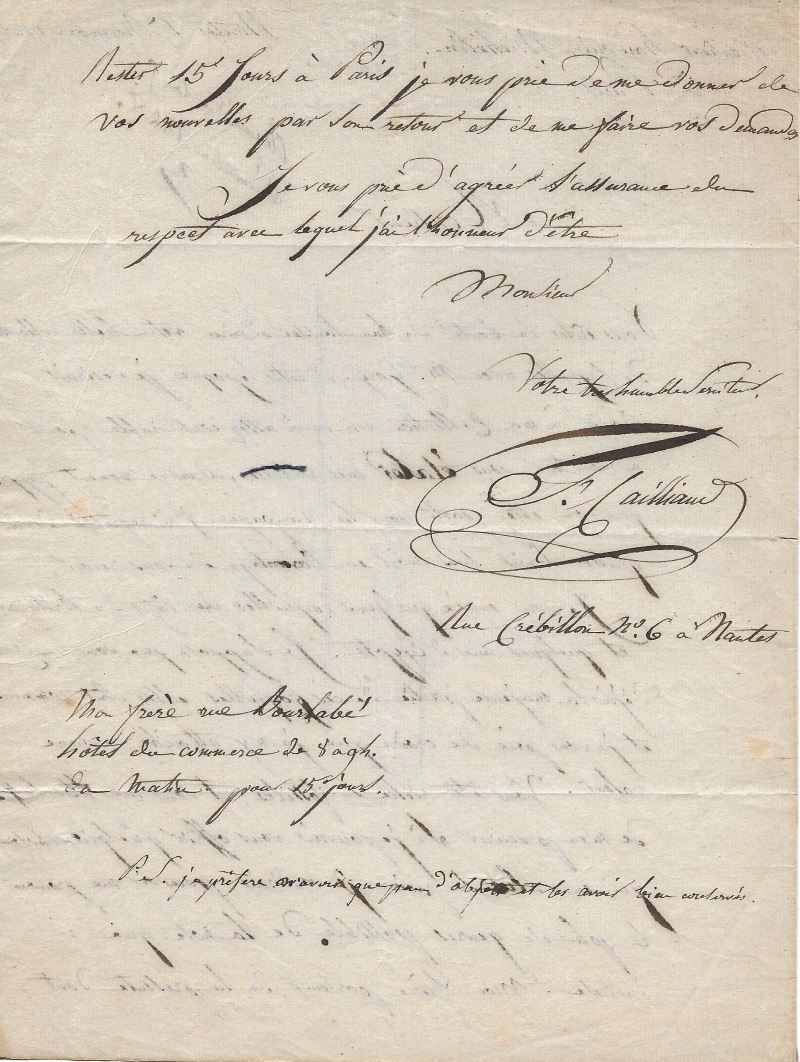 Rester 15 Jours à Paris je vous prie de me donner de
vos nouvelles par son retour et de me faire vos demandes
Je vous prie d'agréer l'assurance du
respect avec lequel j'ai l'honneur d'être
Monsieur
Votre tres humble Serviteur.
F. Cailliaud
Rue Crébillon No. 6 à Nantes
Mon frere rue Bourlabé
hôtel du commerce de 8 à 9h.
du Matin pour 15 jours.
P.S. je préfere avoir que peu d'objets et les avoir bien conservés.